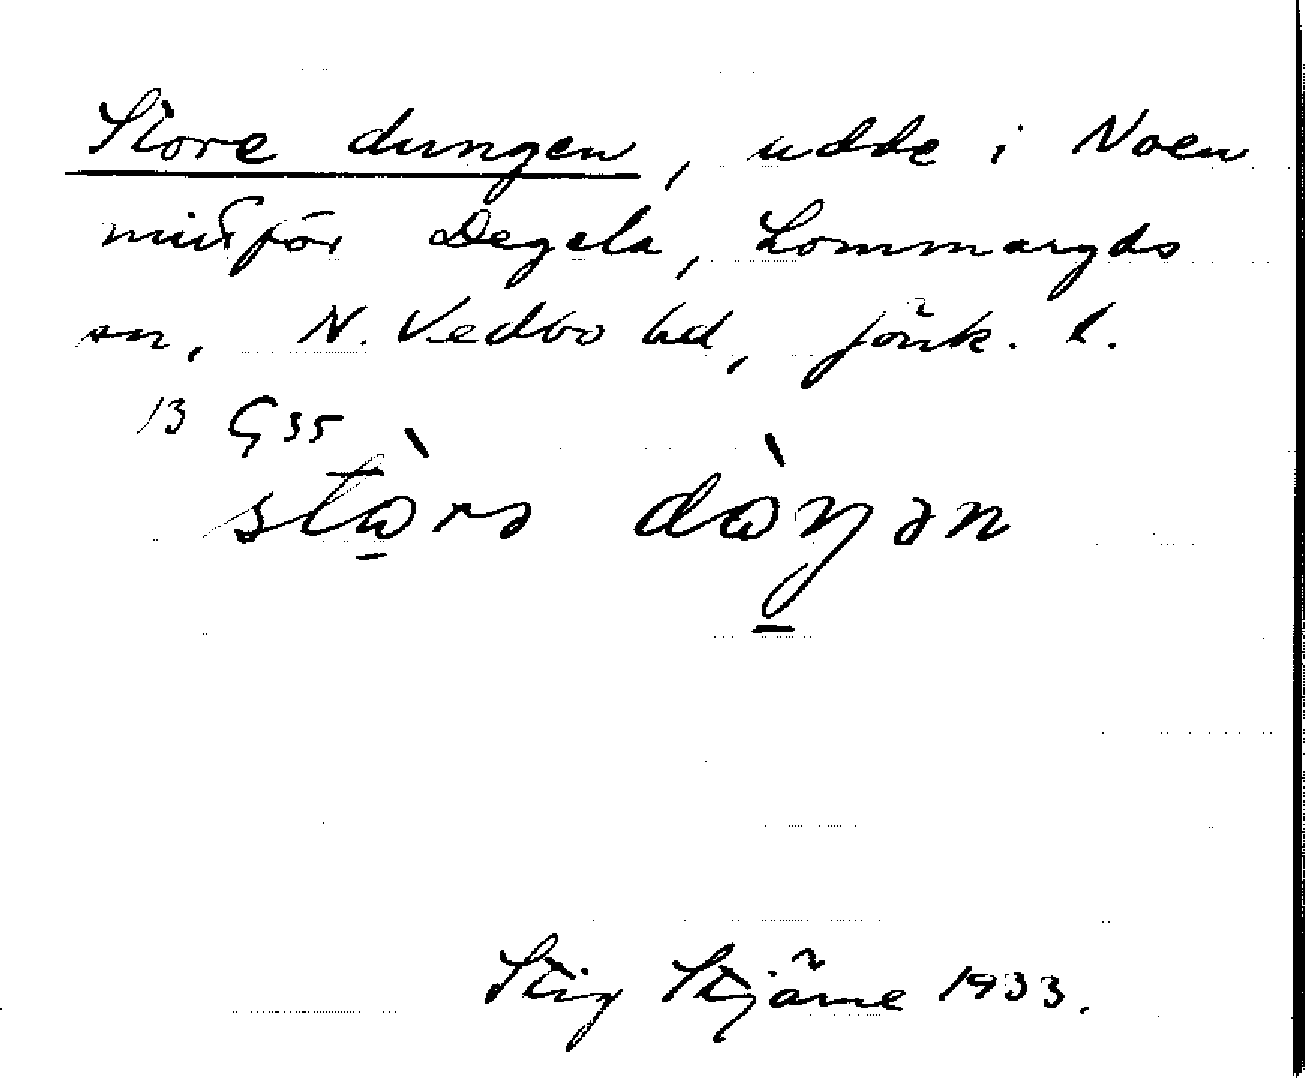 Store dungen, udde i Noen
mittför Degela, Lommaryds
sn, N. Vedbo hd, Jönk. l.
13 G 35
stɷ̀rə dɷ̀ŋən
Stig Stjärne 1933.